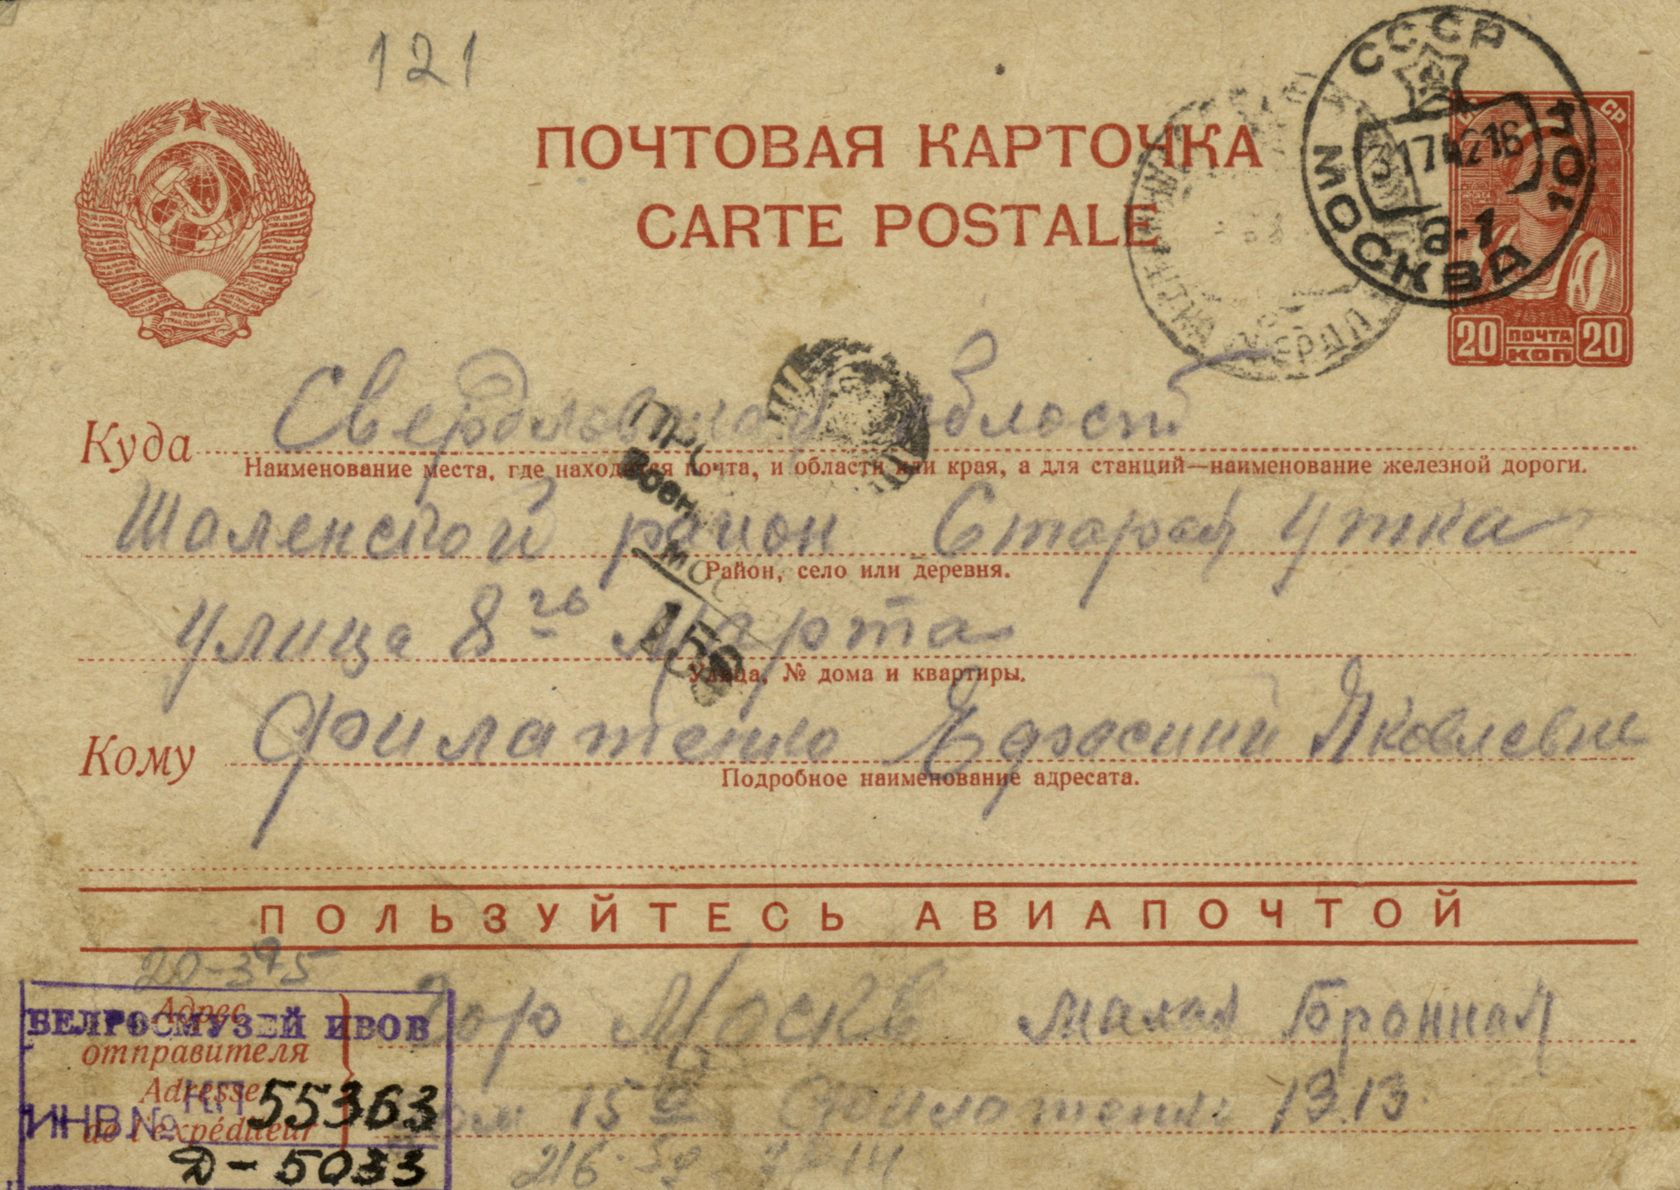 121
ПОЧТОВАЯ КАРТОЧКА
CARTE POSTALE
СССР
МОСКВА
31 7 42 16
а-1
20 ПОЧТА КОП 20
Куда Свердловская область
Наименование места, где находится почта, и области или края, а для станций—наименование железной дороги.
Шаленской район Старая Утка
Район, село или деревня.
улица 8го Марта
Улица, № дома и квартиры.
Кому Филатенко Ефросинии Яковлевне
Подробное наименование адресата.
ПОЛЬЗУЙТЕСЬ АВИАПОЧТОЙ
20-375
Адрес отправителя
Adresse de l'expéditeur
гор Москв Малая Бронная
дом 15 Филатенко 13.13
БЕЛГОСМУЗЕЙ ИВОВ
ИНВ.№ КП 55363
Д-5033